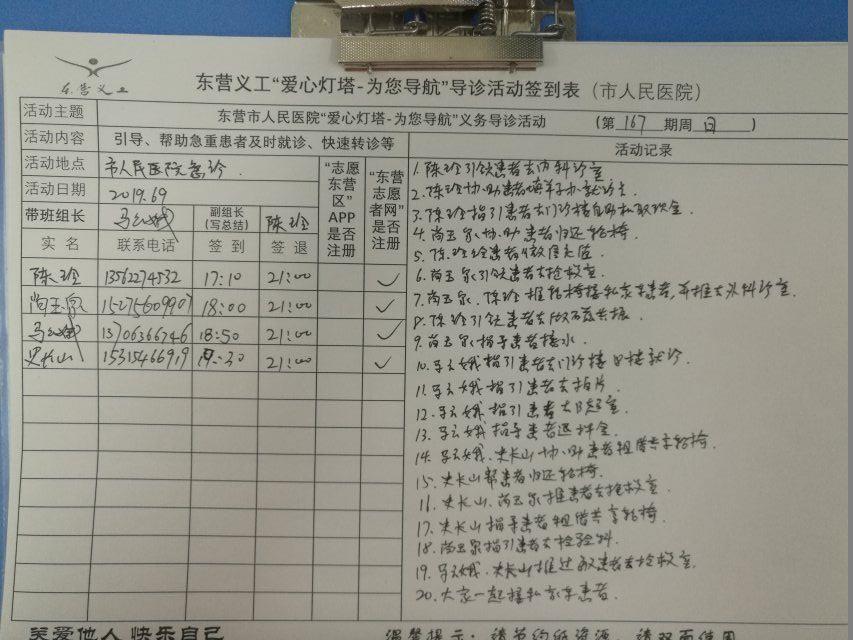 东营义工
东营义工“爱心灯塔-为您导航”导诊活动签到表（市人民医院）
活动主题 东营市人民医院“爱心灯塔-为您导航”义务导诊活动 （第167期周日）
活动内容 引导、帮助急重患者及时就诊、快速转诊等
活动地点 市人民医院急诊
活动日期 2019.6.9
带班组长 马云娥 副组长（写总结） 陈玲
“志愿东营区”APP是否注册
“东营志愿者网”是否注册
实名 联系电话 签到 签退
陈玲 13562274532 17:10 21:00 ✓
尚玉泉 15275609907 18:00 21:00 ✓
马云娥 13706366746 18:50 21:00 ✓
史长山 15315466919 19:30 21:00 ✓
活动记录
1.陈玲引领患者去内科诊室
2.陈玲协助患者填单子办就诊卡
3.陈玲指引患者去门诊楼自助机取现金
4.尚玉泉协助患者归还轮椅
5.陈玲给患者微信充值
6.尚玉泉引领患者去抢救室
7.尚玉泉、陈玲推轮椅接私家车患者,并推去外科诊室.
8.陈玲引领患者去做磁共振
9.尚玉泉指导患者接水
10.马云娥指引患者去门诊楼口腔就诊.
11.马云娥指引患者去拍片.
12.马云娥指引患者去B超室.
13.马云娥指导患者退押金.
14.马云娥.史长山协助患者租借共享轮椅.
15.史长山帮患者归还轮椅.
16.史长山.尚玉泉推患者去抢救室.
17.史长山指导患者租借共享轮椅.
18.尚玉泉指引患者去检验科.
19.马云娥.史长山推过敏患者去抢救室.
20.大家一起接私家车患者.
关爱他人 快乐自己
温馨提示：请节约纸资源，请双面使用